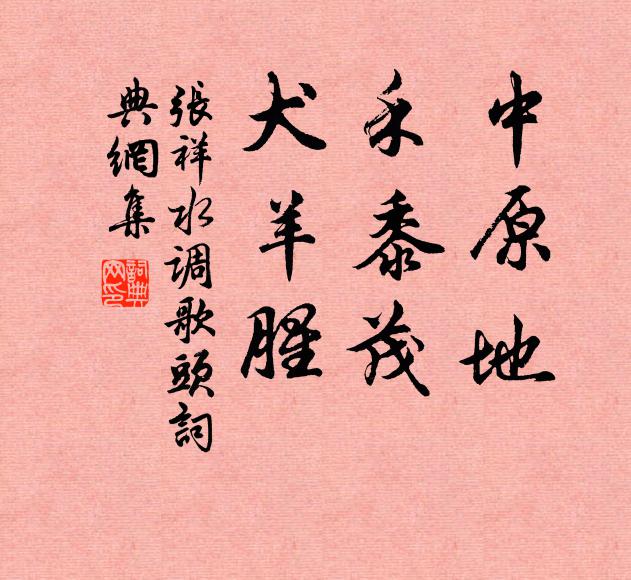 中原地
禾黍茂
犬羊腥
張祥水调歌頭詞
典網集
詞典
网印